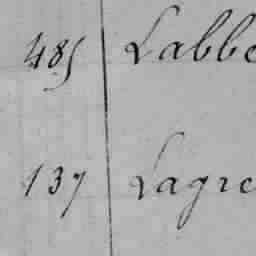 485 Labbe
137 Lagre